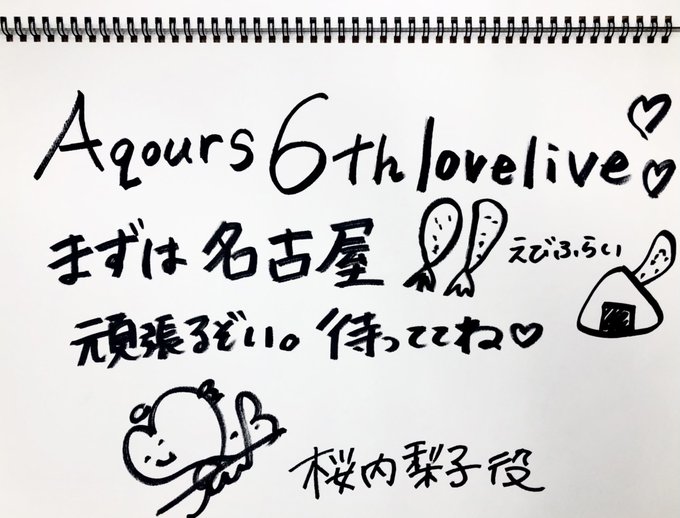 Aqours 6th lovelive
まずは名古屋
えびふらい
頑張るぞい。待っててね
桜内梨子役